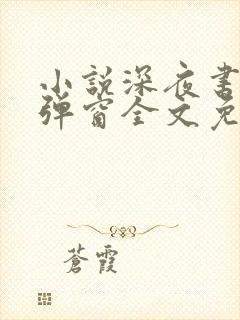 小說深夜書
彈窗全文免
蒼霞